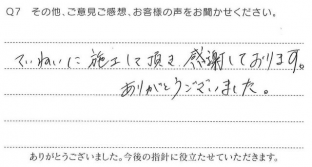 Q7 その他、ご意見ご感想、お客様の声をお聞かせください。
ていねいに施工して頂き感謝しております。
ありがとうございました。
ありがとうございました。今後の指針に役立たせていただきます。